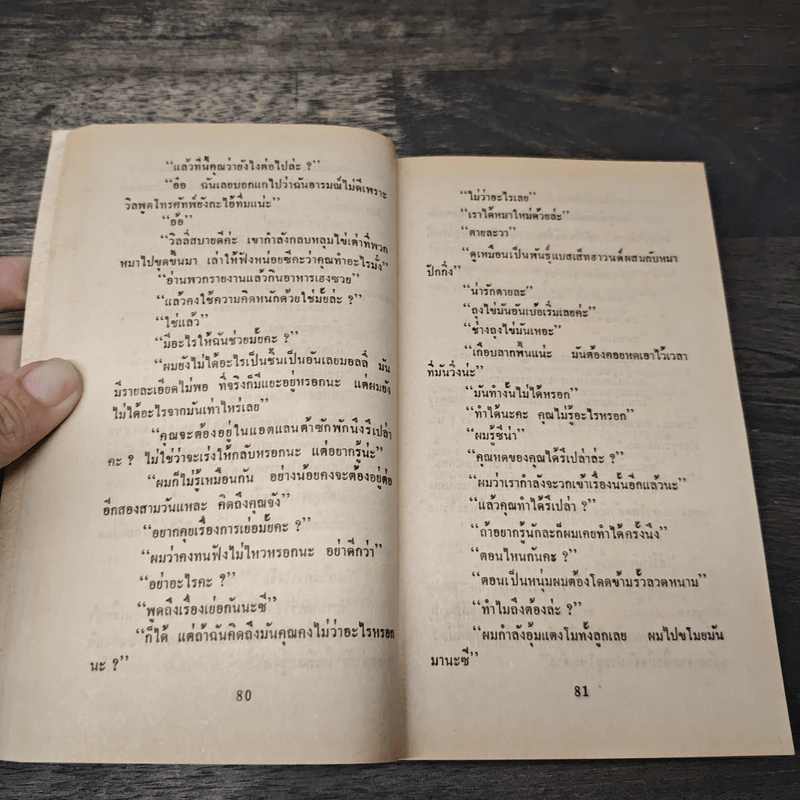 “แล้วทีนี้คุณว่ายังไงต่อไปล่ะ ?”
“อ๋อ ฉันเลยบอกแกไปว่าฉันอารมณ์ไม่ดีเพราะ
วิลพูดโทรศัพท์ยังกะไอ้ทึ่มแน่ะ”
“อ้อ”
“วิลลี่สบายดีค่ะ เขากำลังกลบหลุมไข่เต่าที่พวก
หมาไปขุดขึ้นมา เล่าให้ฟังหน่อยซีคะว่าคุณทำอะไรมั่ง”
“อ่านพวกรายงานแล้วกินอาหารเฮงซวย”
“แล้วคงใช้ความคิดหนักด้วยใช่มั้ยล่ะ ?”
“ใช่แล้ว”
“มีอะไรให้ฉันช่วยมั้ยคะ ?”
“ผมยังไม่ได้อะไรเป็นชิ้นเป็นอันเลยมอลลี่ มัน
มีรายละเอียดไม่พอ ที่จริงก็มีแยะอยู่หรอกนะ แต่ผมยัง
ไม่ได้อะไรจากมันเท่าไหร่เลย”
“คุณจะต้องอยู่ในแอตแลนต้าซักพักนึงรึเปล่า
คะ ? ไม่ใช่ว่าจะเร่งให้กลับหรอกนะ แต่อยากรู้น่ะ”
“ผมก็ไม่รู้เหมือนกัน อย่างน้อยคงจะต้องอยู่ต่อ
อีกสองสามวันแหละ คิดถึงคุณจัง”
“อยากคุยเรื่องการเย่อมั้ยคะ ?”
“ผมว่าคงทนฟังไม่ไหวหรอกนะ อย่าดีกว่า”
“อย่าอะไรคะ ?”
“พูดถึงเรื่องเย่อกันนะซี”
“ก็ได้ แต่ถ้าฉันคิดถึงมันคุณคงไม่ว่าอะไรหรอก
นะ ?”
80
“ไม่ว่าอะไรเลย”
“เราได้หมาใหม่ด้วยล่ะ”
“ตายละวา”
“ดูเหมือนเป็นพันธุ์แบสเส็ทฮาวนด์ผสมกับหมา
ปักกิ่ง”
“น่ารักตายละ”
“ถุงไข่มันอันเบ้อเริ่มเลยค่ะ”
“ช่างถุงไข่มันเหอะ”
“เกือบลากพื้นแน่ะ มันต้องคอยหดเอาไว้เวลา
ที่มันวิ่งน่ะ”
“มันทำงั้นไม่ได้หรอก”
“ทำได้นะคะ คุณไม่รู้อะไรหรอก”
“ผมรู้ซีน่า”
“คุณหดของคุณได้รึเปล่าล่ะ ?”
“ผมว่าเรากำลังจะวกเข้าเรื่องนั้นอีกแล้วนะ”
“แล้วคุณทำได้รึเปล่า ?”
“ถ้าอยากรู้นักละก็ผมเคยทำได้ครั้งนึง”
“ตอนไหนกันคะ ?”
“ตอนเป็นหนุ่มผมต้องโดดข้ามรั้วลวดหนาม”
“ทำไมถึงต้องล่ะ ?”
“ผมกำลังอุ้มแตงโมทั้งลูกเลย ผมไปขโมยมัน
มานะซี”
81